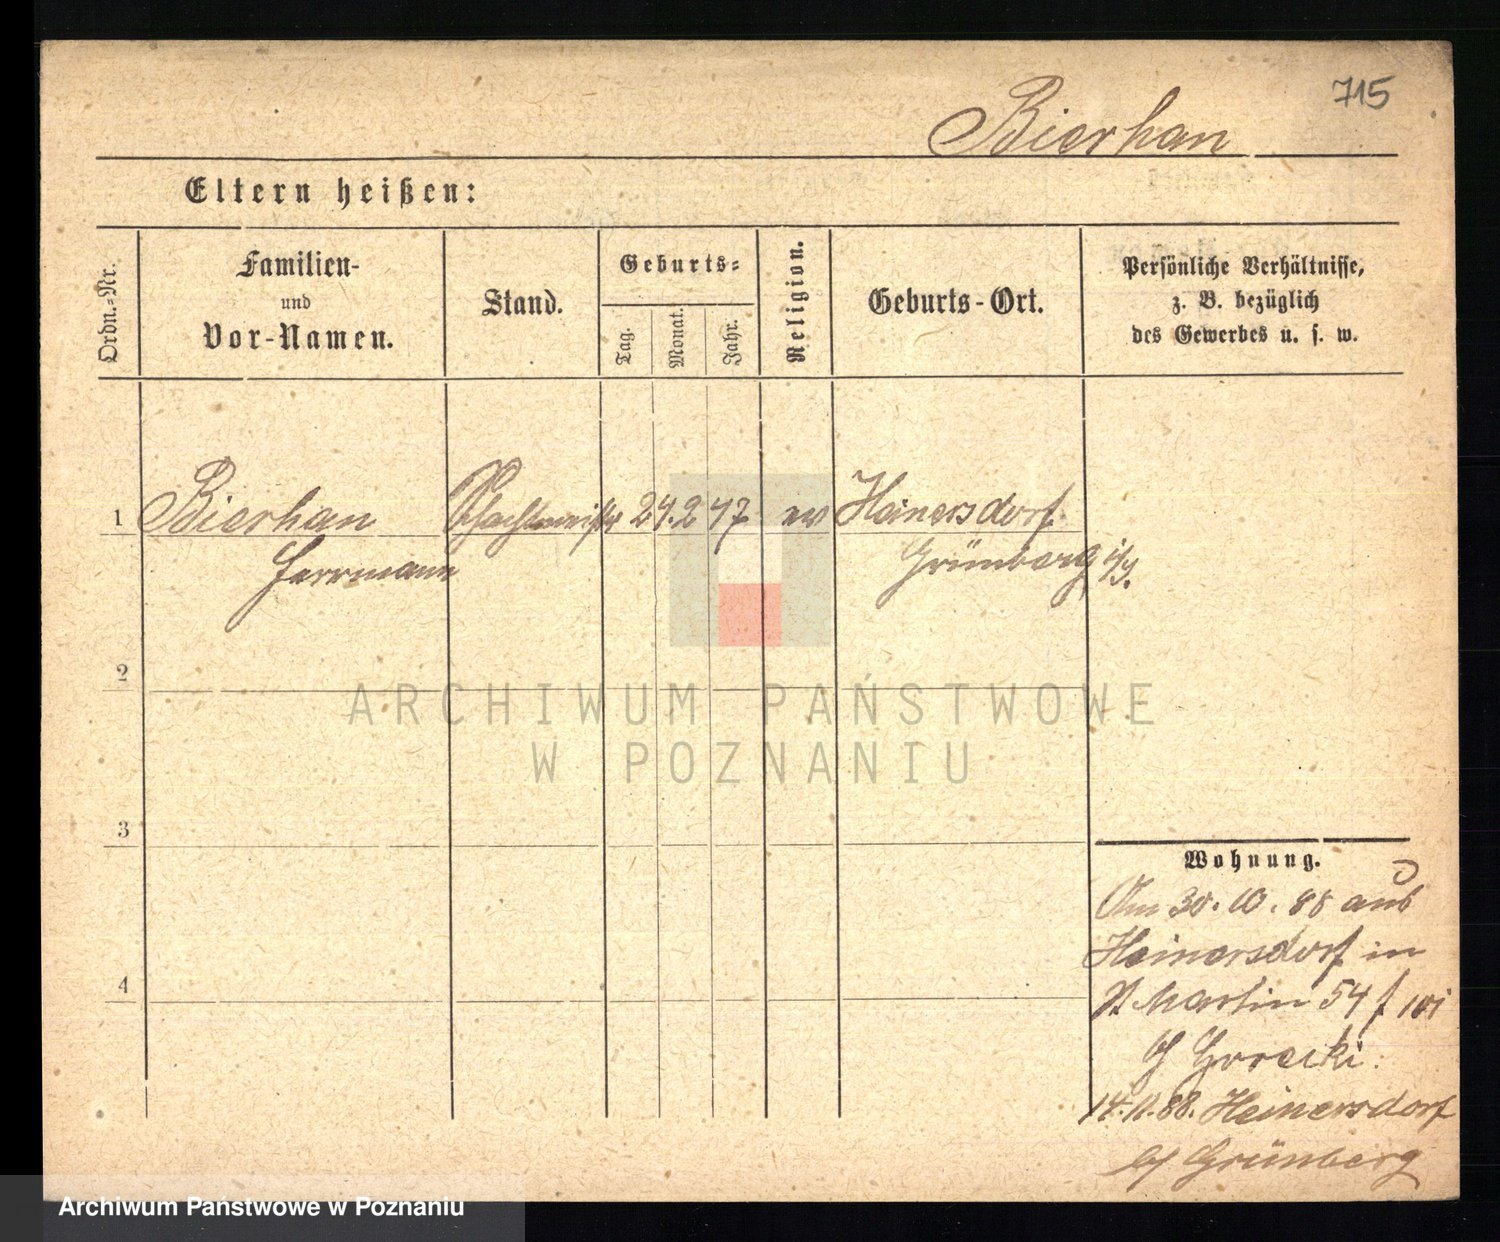 715
Bierhan
Eltern heißen:
Ordn.-Nr.
Familien-
und
Vor-Namen.
Stand.
Geburts-
Tag.
Monat.
Jahr.
Religion.
Geburts-Ort.
Persönliche Verhältnisse,
z. B. bezüglich
des Gewerbes u. s. w.
1 Bierhan Schachtmeister 24. 2 47 ev Heinersdorf
Herrmann Grünberg
2
3
4
Wohnung.
Am 30. 10. 88 aus
Heinersdorf in
St Martin 54
Gorecki.
14. 11. 88. Heinersdorf
b/ Grünberg
ARCHIWUM PAŃSTWOWE
W POZNANIU
Archiwum Państwowe w Poznaniu